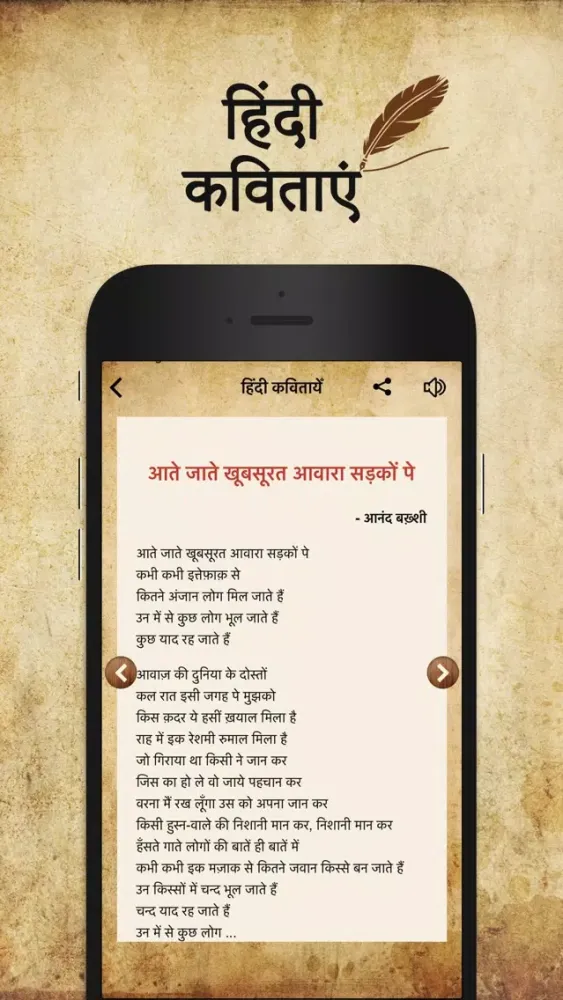 हिंदी
कविताएं
हिंदी कवितायेँ
आते जाते खूबसूरत आवारा सड़कों पे
- आनंद बख़्शी
आते जाते खूबसूरत आवारा सड़कों पे
कभी कभी इत्तेफ़ाक़ से
कितने अंजान लोग मिल जाते हैं
उन में से कुछ लोग भूल जाते हैं
कुछ याद रह जाते हैं
आवाज़ की दुनिया के दोस्तों
कल रात इसी जगह पे मुझको
किस क़दर ये हसीं ख़याल मिला है
राह में इक रेशमी रुमाल मिला है
जो गिराया था किसी ने जान कर
जिस का हो ले वो जाये पहचान कर
वरना मैं रख लूँगा उस को अपना जान कर
किसी हुस्न-वाले की निशानी मान कर, निशानी मान कर
हँसते गाते लोगों की बातें ही बातें में
कभी कभी इक मज़ाक से कितने जवान किस्से बन जाते हैं
उन किस्सों में चन्द भूल जाते हैं
चन्द याद रह जाते हैं
उन में से कुछ लोग ...